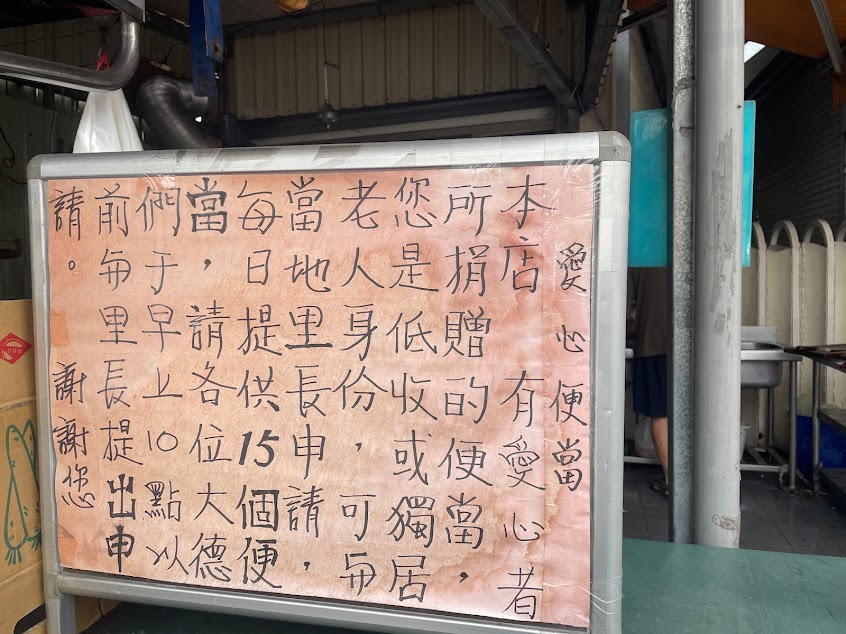 愛心便當
本店 有愛心者
所捐贈的便當，
您是低收或獨居
老人身份，可与
當地里長申請，
每日提供15個便
當，請各位大德
們于早上10點以
前与里長提出申
請。 謝謝您